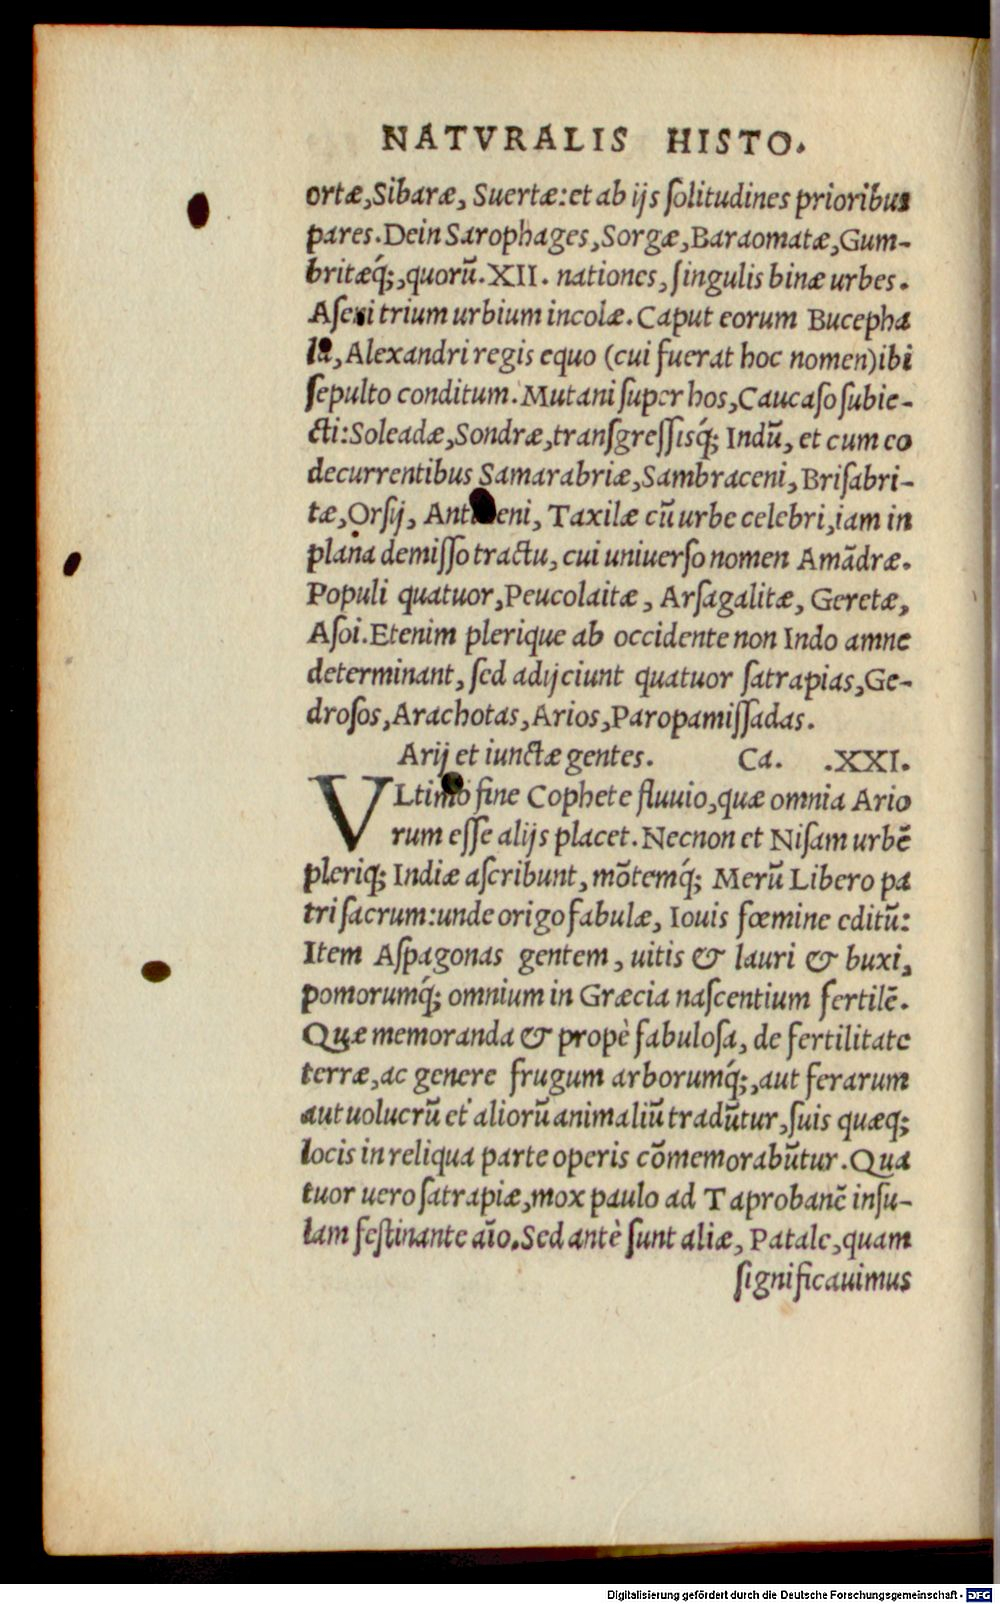 NATVRALIS HISTO.
ortæ, Sibaræ, Suertæ: et ab ijs ſolitudines prioribus
pares. Dein Sarophages, Sorgæ, Baraomatæ, Gum-
britæq́;, quorū. XII. nationes, ſingulis binæ urbes.
Aſeni trium urbium incolæ. Caput eorum Bucepha
la, Alexandri regis equo (cui fuerat hoc nomen) ibi
ſepulto conditum. Mutani ſuper hos, Caucaſo ſubie-
cti: Soleadæ, Sondræ, tranſgreſſisq́; Indū, et cum eo
decurrentibus Samarabriæ, Sambraceni, Briſabri-
tæ, Orſij, Anti eni, Taxilæ cū urbe celebri, iam in
plana demiſſo tractu, cui uniuerſo nomen Amādræ.
Populi quatuor, Peucolaitæ, Arſagalitæ, Geretæ,
Aſoi. Etenim plerique ab occidente non Indo amne
determinant, ſed adijciunt quatuor ſatrapias, Ge-
droſos, Arachotas, Arios, Paropamiſſadas.
Arij et iunctæ gentes. Ca. .XXI.
VLtimo fine Cophete fluuio, quæ omnia Ario
rum eſſe alijs placet. Necnon et Niſam urbē
pleriq; Indiæ aſcribunt, mōtemq́; Merū Libero pa
tri ſacrum: unde origo fabulæ, Iouis fœmine editū:
Item Aſpagonas gentem, uitis & lauri & buxi,
pomorumq́; omnium in Græcia naſcentium fertilē.
Quæ memoranda & propè fabuloſa, de fertilitate
terræ, ac genere frugum arborumq́;, aut ferarum
aut uolucrū et aliorū animaliū tradūtur, ſuis quæq;
locis in reliqua parte operis cōmemorabūtur. Qua
tuor uero ſatrapiæ, mox paulo ad Taprobanē inſu-
lam feſtinante aīo. Sed antè ſunt aliæ, Patale, quam
ſignificauimus
Digitalisierung gefördert durch die Deutsche Forschungsgemeinschaft - DFG